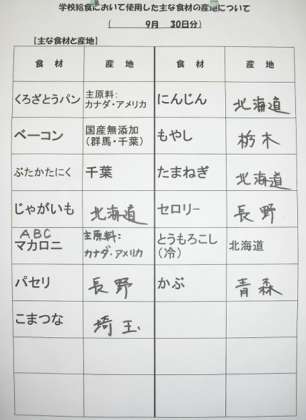 学校給食において使用した主な食材の産地について
( 9月 30日分)
【主な食材と産地】
食 材 産 地 食 材 産 地
くろざとうパン 主原料: カナダ・アメリカ にんじん 北海道
ベーコン 国産無添加 (群馬・千葉) もやし 栃木
ぶたかたにく 千葉 たまねぎ 北海道
じゃがいも 北海道 セロリー 長野
ABC マカロニ 主原料: カナダ・アメリカ とうもろこし (冷) 北海道
パセリ 長野 かぶ 青森
こまつな 埼玉